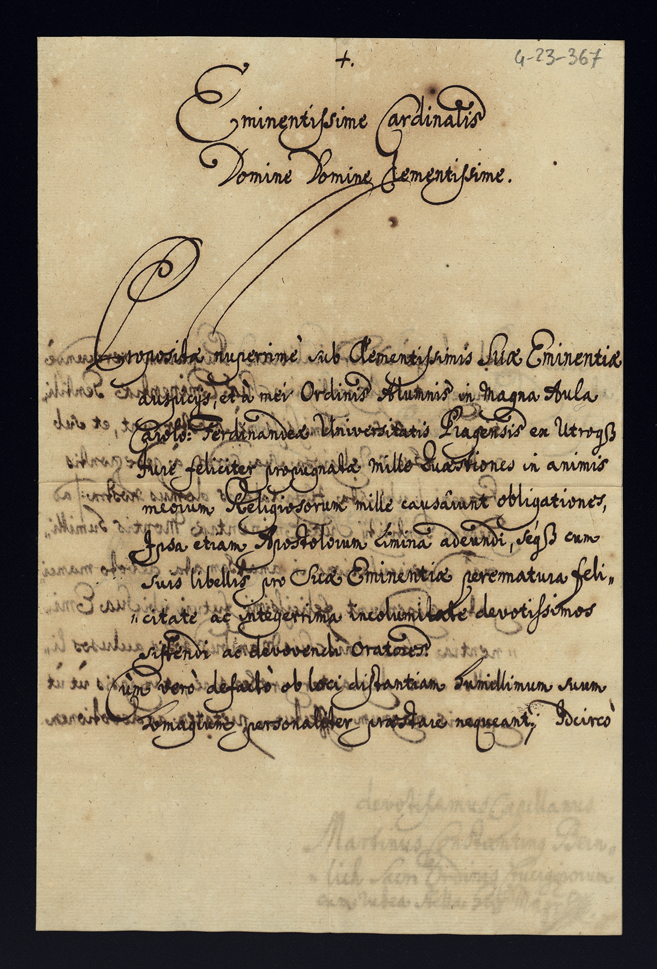 +.
4-23-367
Eminentissime Cardinalis
Domine Domine Clementissime.
Propositæ nuperrimè sub Clementissimis Suæ Eminentiæ
auspicijs, et à mei Ordinis Alumnis in Magna Aula
Carolo: Ferdinandeæ Universitatis Pragensis ex Utroqß
Jure feliciter propugnatæ mille Quæstiones in animis
meorum Religiosorum mille causârunt obligationes,
Ipsa etiam Apostolorum Limina adeundi, seqß cum
suis libellis pro Suæ Eminentiæ perematura feli„
„citate ac integerrima incolumitate devotissimos
sistendi ac devovendi Oratores.
Cùm verò defactò ob loci distantiam humillimum suum
homagium personaliter præstare nequeant; Idcircò
devotissimus Capellanus
Martinus Constantinus Bein„
„lich Sacri Ordinis Crucigerorum
cum rubea stella